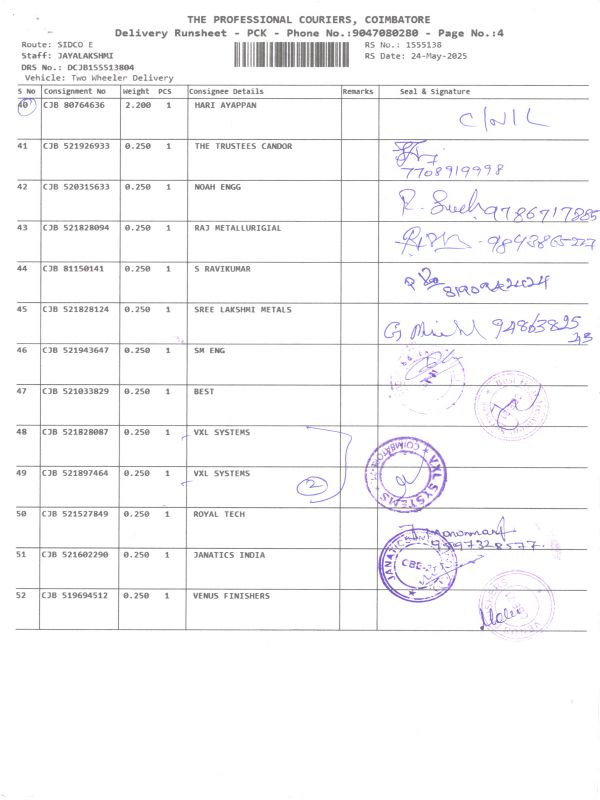 THE PROFESSIONAL COURIERS, COIMBATORE
Delivery Runsheet - PCK - Phone No.:9047080280 - Page No.:4
Route: SIDCO E RS No.: 1555138
Staff: JAYALAKSHMI RS Date: 24-May-2025
DRS No.: DCJB155513804
Vehicle: Two Wheeler Delivery
S No Consignment No Weight PCS Consignee Details Remarks Seal & Signature
40 CJB 80764636 2.200 1 HARI AYAPPAN
41 CJB 521926933 0.250 1 THE TRUSTEES CANDOR
7708919998
42 CJB 520315633 0.250 1 NOAH ENGG
9786717885
43 CJB 521828094 0.250 1 RAJ METALLURIGIAL
44 CJB 81150141 0.250 1 S RAVIKUMAR
45 CJB 521828124 0.250 1 SREE LAKSHMI METALS
46 CJB 521943647 0.250 1 SM ENG
47 CJB 521033829 0.250 1 BEST
48 CJB 521828087 0.250 1 VXL SYSTEMS
49 CJB 521897464 0.250 1 VXL SYSTEMS 2 VXL SYSTEMS
50 CJB 521527849 0.250 1 ROYAL TECH
51 CJB 521602290 0.250 1 JANATICS INDIA
52 CJB 519694512 0.250 1 VENUS FINISHERS